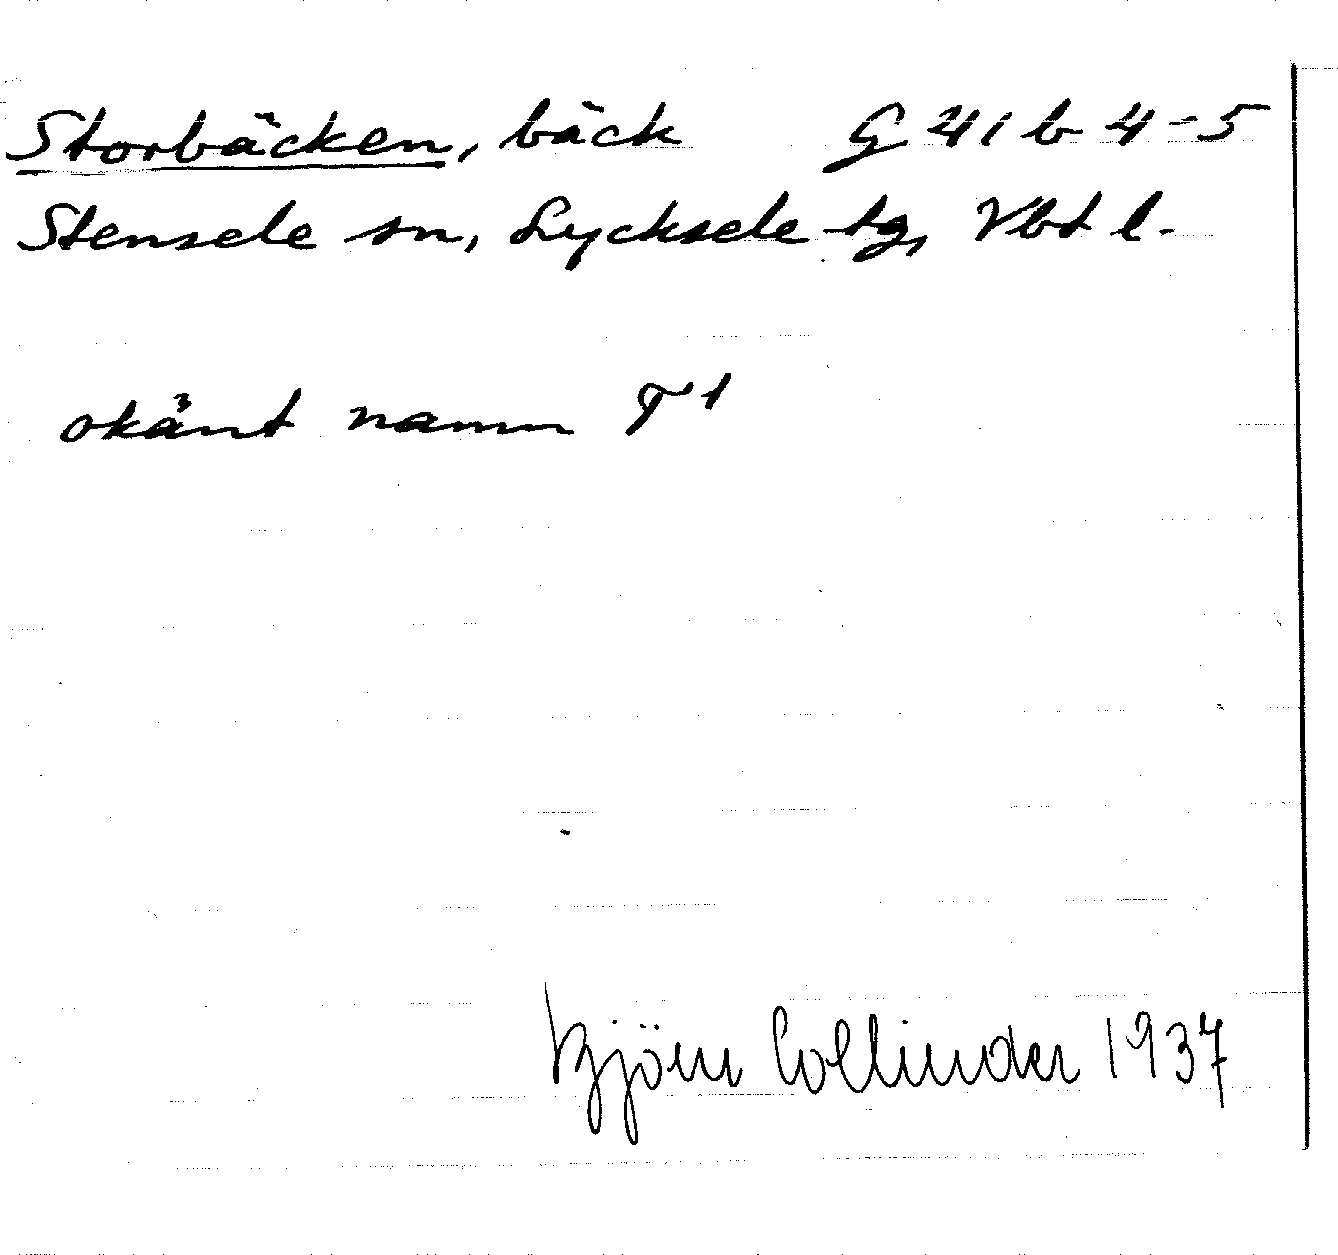 Storbäcken, bäck G 41 b 4-5
Stensele sn, Lycksele tg, Vbt l.
okänt namn T 1
Björn Collinder 1937